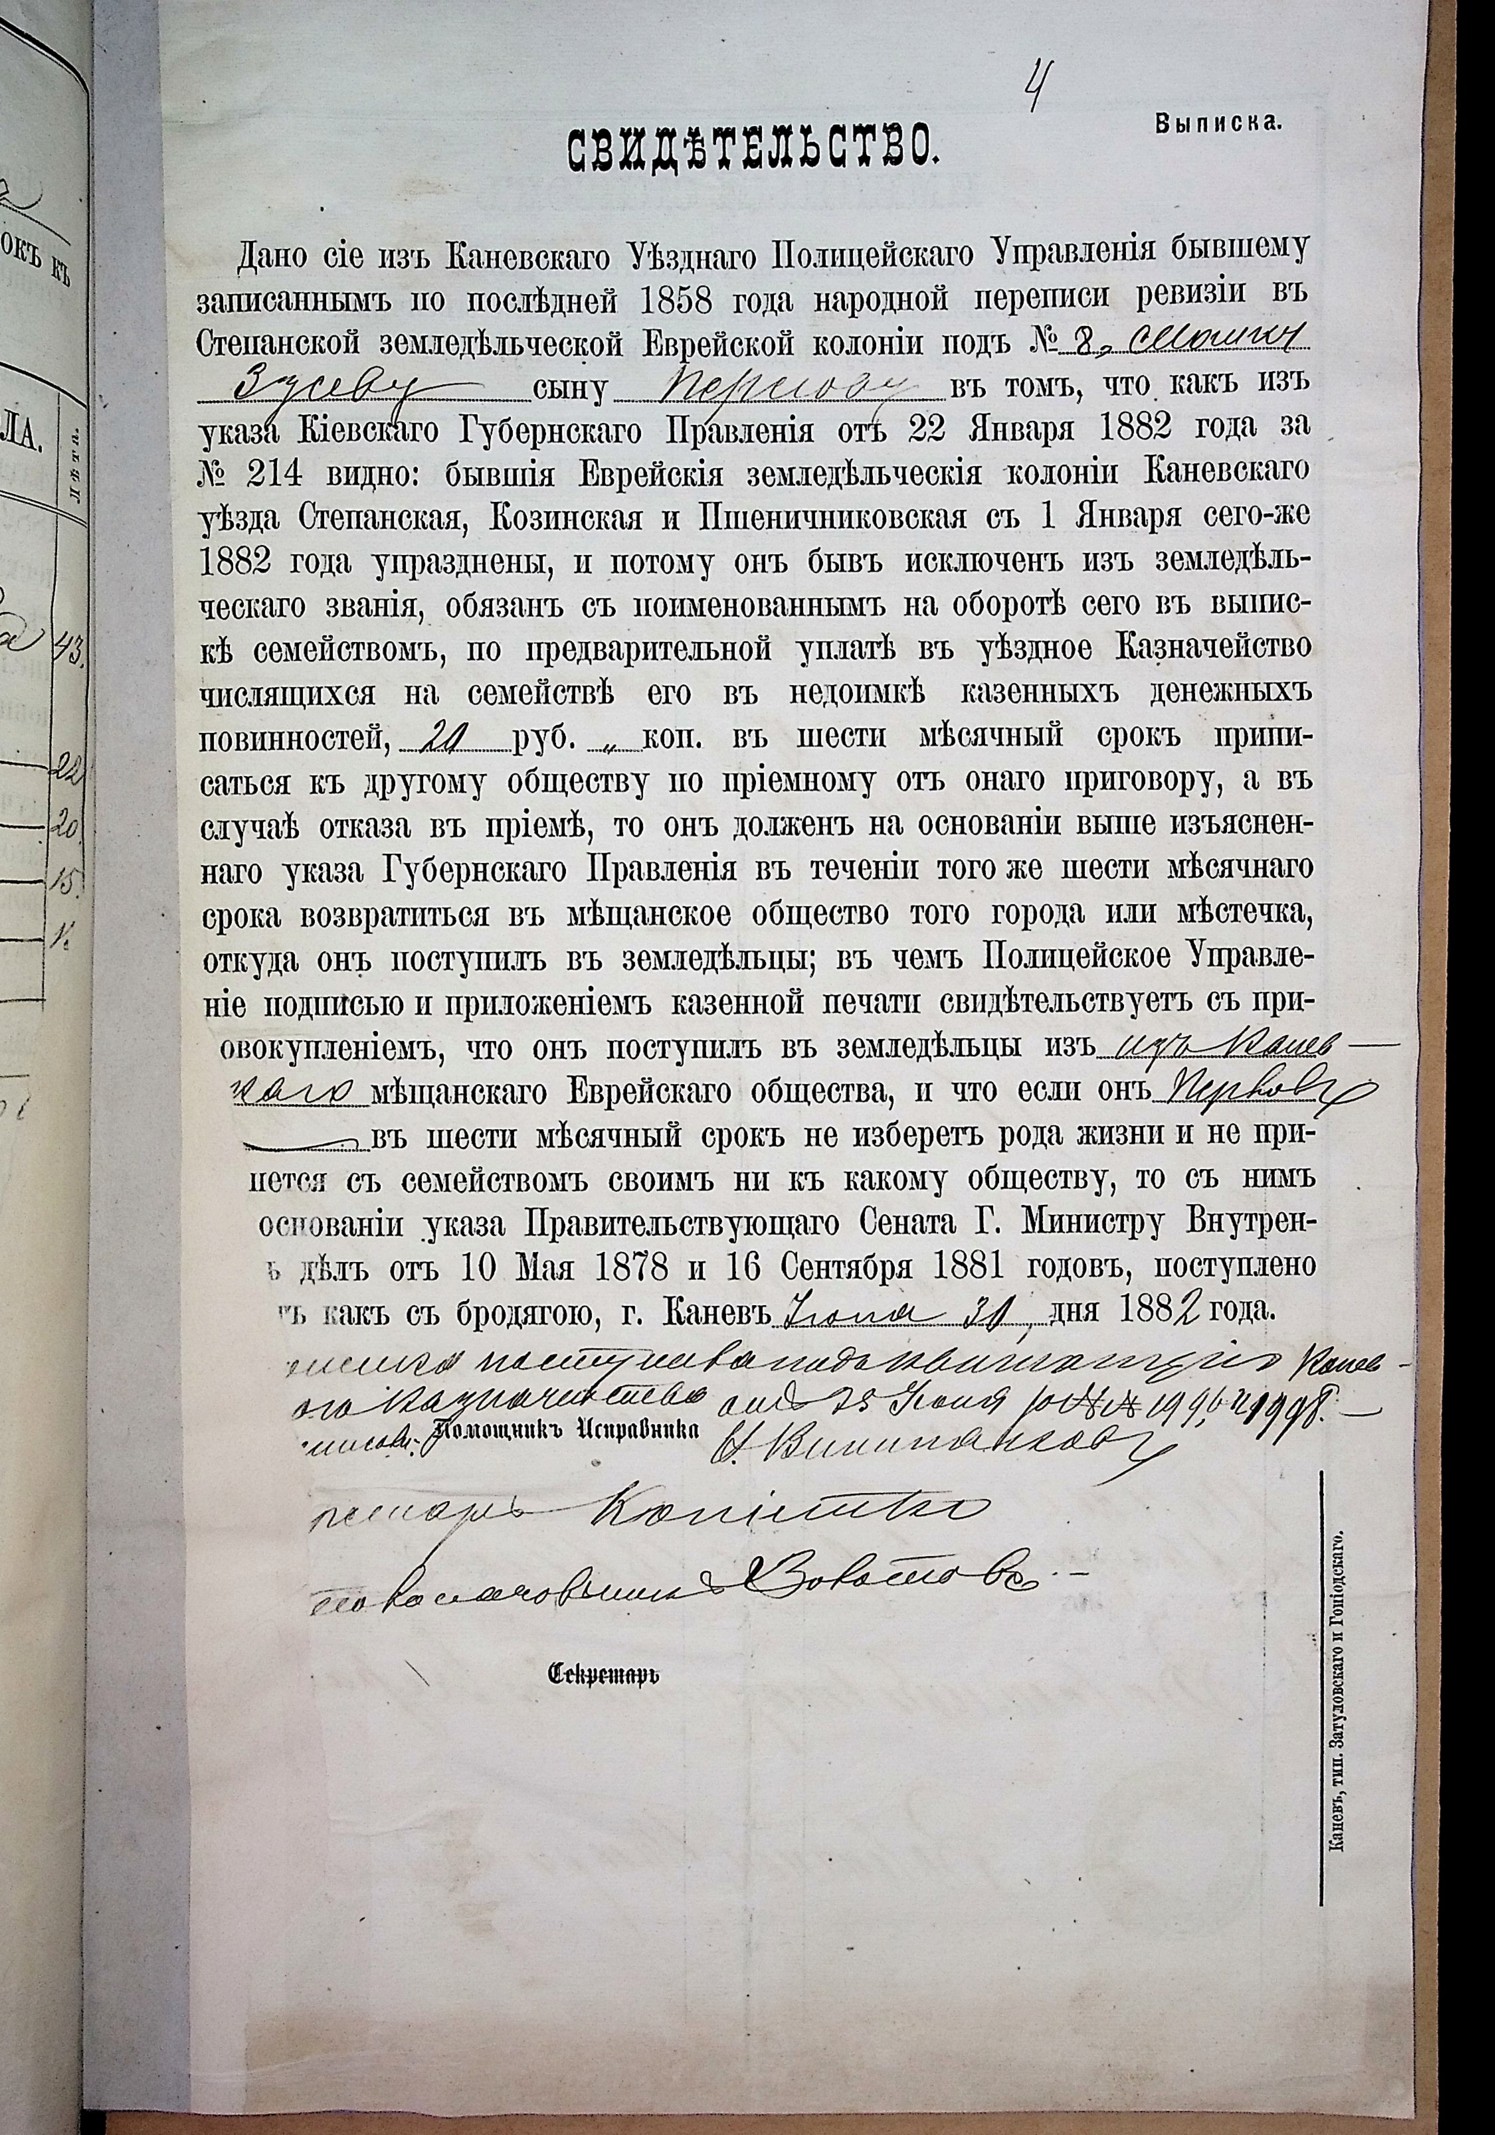 4
Выписка.
СВИДѢТЕЛЬСТВО.
Дано сіе изъ Каневскаго Уѣзднаго Полицейскаго Управленія бывшему
записаннымъ по послѣдней 1858 года народной переписи ревизіи въ
Степанской земледѣльческой Еврейской колоніи подъ № 8,
Зусеву сыну въ томъ, что какъ изъ
указа Кіевскаго Губернскаго Правленія отъ 22 Января 1882 года за
№ 214 видно: бывшія Еврейскія земледѣльческія колоніи Каневскаго
уѣзда Степанская, Козинская и Пшеничниковская съ 1 Января сего-же
1882 года упразднены, и потому онъ бывъ исключенъ изъ земледѣль-
ческаго званія, обязанъ съ поименованнымъ на оборотѣ сего въ выпис-
кѣ семействомъ, по предварительной уплатѣ въ уѣздное Казначейство
числящихся на семействѣ его въ недоимкѣ казенныхъ денежныхъ
повинностей, руб. „ коп. въ шести мѣсячный срокъ припи-
саться къ другому обществу по пріемному отъ онаго приговору, а въ
случаѣ отказа въ пріемѣ, то онъ долженъ на основаніи выше изъяснен-
наго указа Губернскаго Правленія въ теченіи того же шести мѣсячнаго
срока возвратиться въ мѣщанское общество того города или мѣстечка,
откуда онъ поступилъ въ земледѣльцы; въ чемъ Полицейское Управле-
ніе подписью и приложеніемъ казенной печати свидѣтельствуетъ съ при-
овокупленіемъ, что онъ поступилъ въ земледѣльцы изъ изъ Канев
каго мѣщанскаго Еврейскаго общества, и что если онъ
въ шести мѣсячный срокъ не изберетъ рода жизни и не при-
пется съ семействомъ своимъ ни къ какому обществу, то съ нимъ
основаніи указа Правительствующаго Сената Г. Министру Внутрен-
ъ дѣлъ отъ 10 Мая 1878 и 16 Сентября 1881 годовъ, поступлено
какъ съ бродягою, г. Каневъ дня 1882 года.
Канев-
ого Казначейства 1996 и 1998.
Помощникъ Исправника
Секретарь
Каневъ, тип. Затуловскаго и Гоніодскаго.
окъ къ
ЛА.
Лѣта.
43.
22
20.
15.